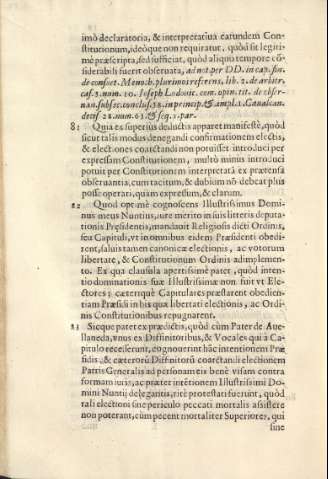 imò declaratoria, & interpretatiua earundem Con-
stitutionum, ideòque non requiratur, quòd sit legiti-
mè præscripta, sed sufficiat, quòd aliquo tempore cō-
siderabili fuerit obseruata, ad not. per DD. in cap. fin.
de consuet. Menoch. plurimos referens, lib. 2. de arbitr.
cas. 3. num. 10. Joseph Lodouic. com. opin. tit. de obser-
nan. subser. conclus. 38. in princip. & ampl. 1. Caualcan.
decis 28. num. 63. & seq. 1. par.
81 Quia ex superius deductis apparet manifestè, quòd
sicut talis modus denegandi confirmationem electis,
& electiones coarctandi non potuisset introduci per
expressam Constitutionem, multò minùs introduci
potuit per Constitutionem interpretatā ex prætensa
obseruantia, cum tacitum, & dubium nō debeat plus
posse operari, quam expressum, & clarum.
82 Quod optimè cognoscens Illustrissimus Domi-
nus meus Nuntius, iure merito in suis litteris deputa-
tionis Præsidentis, mandauit Religiosis dicti Ordinis,
seu Capituli, vt in omnibus eidem Præsidenti obedi-
rent, saluis tamen canonicæ electionis, ac votorum
libertate, & Constitutionum Ordinis adimplemen-
to. Ex qua clausula apertissimè patet, quòd inten-
tio dominationis suæ Illustrissimæ non fuit vt Ele-
ctores; cæterique Capitulares præstarent obedien-
tiam Præsidi in his quæ libertati electionis, ac Ordi-
nis Constitutionibus repugnarent.
83 Sicque patet ex prædictis, quòd cùm Pater de Aue-
llaneda, vnus ex Diffinitoribus, & Vocales qui a Ca-
pitulo recesserunt, cognouerint hāc intentionem Præ
sidis, & cæterorū Diffinitorū coarctandi electionem
Patris Generalis ad personam eis benè visam contra
formam iuris, ac præter intētionem Illustrissimi Do-
mini Nuntij delegantis, ritè protestati fuerint, quòd
tali electioni sine periculo peccati mortalis assistere
non poterant, cùm pecent mortaliter Superiores, qui
sine